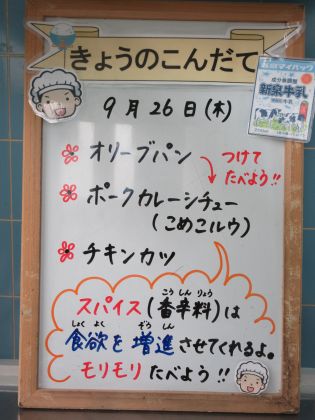 きょうのこんだて
9月26日(木)
オリーブパン
つけて
たべよう!!
ポークカレーシチュー
(こめこルウ)
チキンカツ
スパイス(香辛料)は
こうしんりょう
食欲を増進させてくれるよ。
しょくよく ぞうしん
モリモリたべよう!!
成分無調整
牛乳